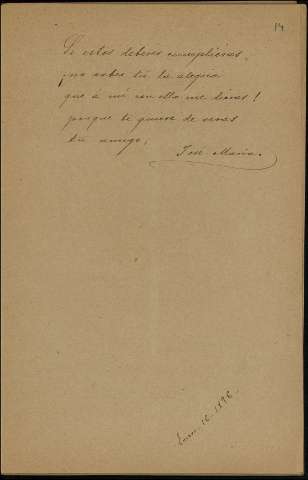 14
Si estos deberes cumplieras,
¡no sabes tú la alegria
que á mí con ello me dieras!
porque te quiere de veras
tu amigo,
José Maria.
Enero 16-1896